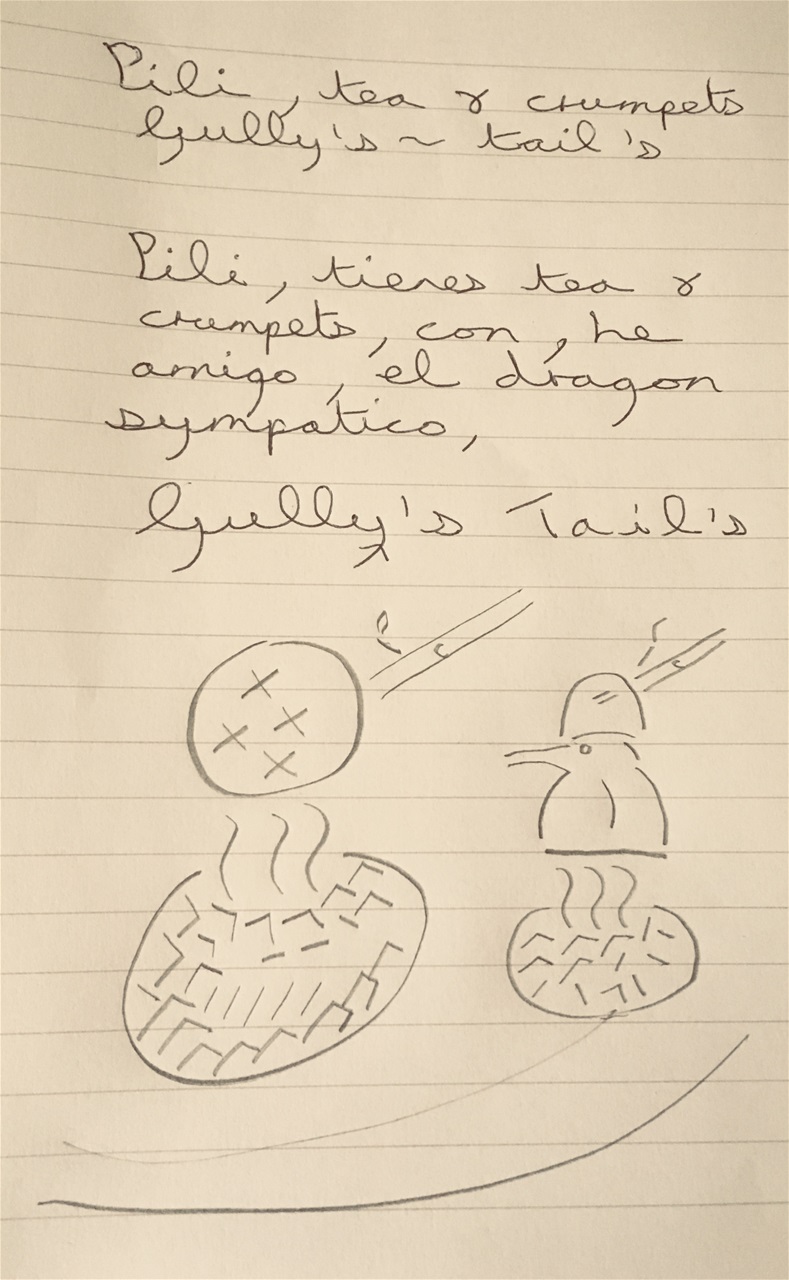 Pili, tea & crumpets
Gully's ~ tail's
Pili, tienes tea &
crumpets, con, he
amigo, el dragon
sympatico,
Gully's Tail's